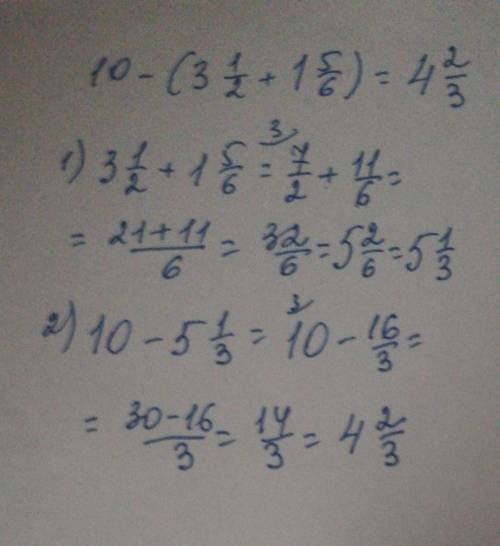 10 - (3 1/2 + 1 5/6) = 4 2/3
1) 3 1/2 + 1 5/6 = 3⁾ 7/2 + 11/6 =
= 21+11/6 = 32/6 = 5 2/6 = 5 1/3
2) 10 - 5 1/3 = 3⁾ 10 - 16/3 =
= 30-16/3 = 14/3 = 4 2/3